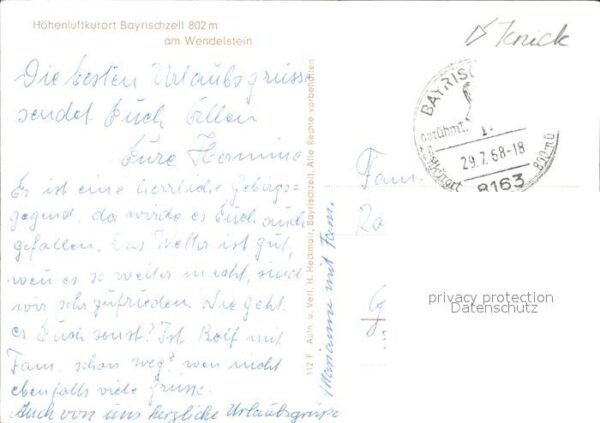 Höhenluftkurort Bayrischzell 802 m
am Wendelstein
Die besten Urlaubsgrüsse
sendet Euch Allen
Eure Hermine
Es ist eine herrliche Gebirgs=
gegend, da würde es Euch auch
gefallen. Das Wetter ist gut,
wen es so weiter macht, sind
wir sehr zufrieden. Wie geht
es Euch sonst? Ist Rolf mit
Fam. schon weg? wen nicht
ebenfalls viele Grüsse.
Auch von uns herzliche Urlaubsgrüße
Marianne mit Fam.
112 F. Aufn. u. Verl. H. Heckmair, Bayrischzell. Alle Rechte vorbehalten
Knick
BAYRISC
berühmt.
29.7.68-18
800 m ü
8163
Fam.
Ra
G
privacy protection
Datenschutz